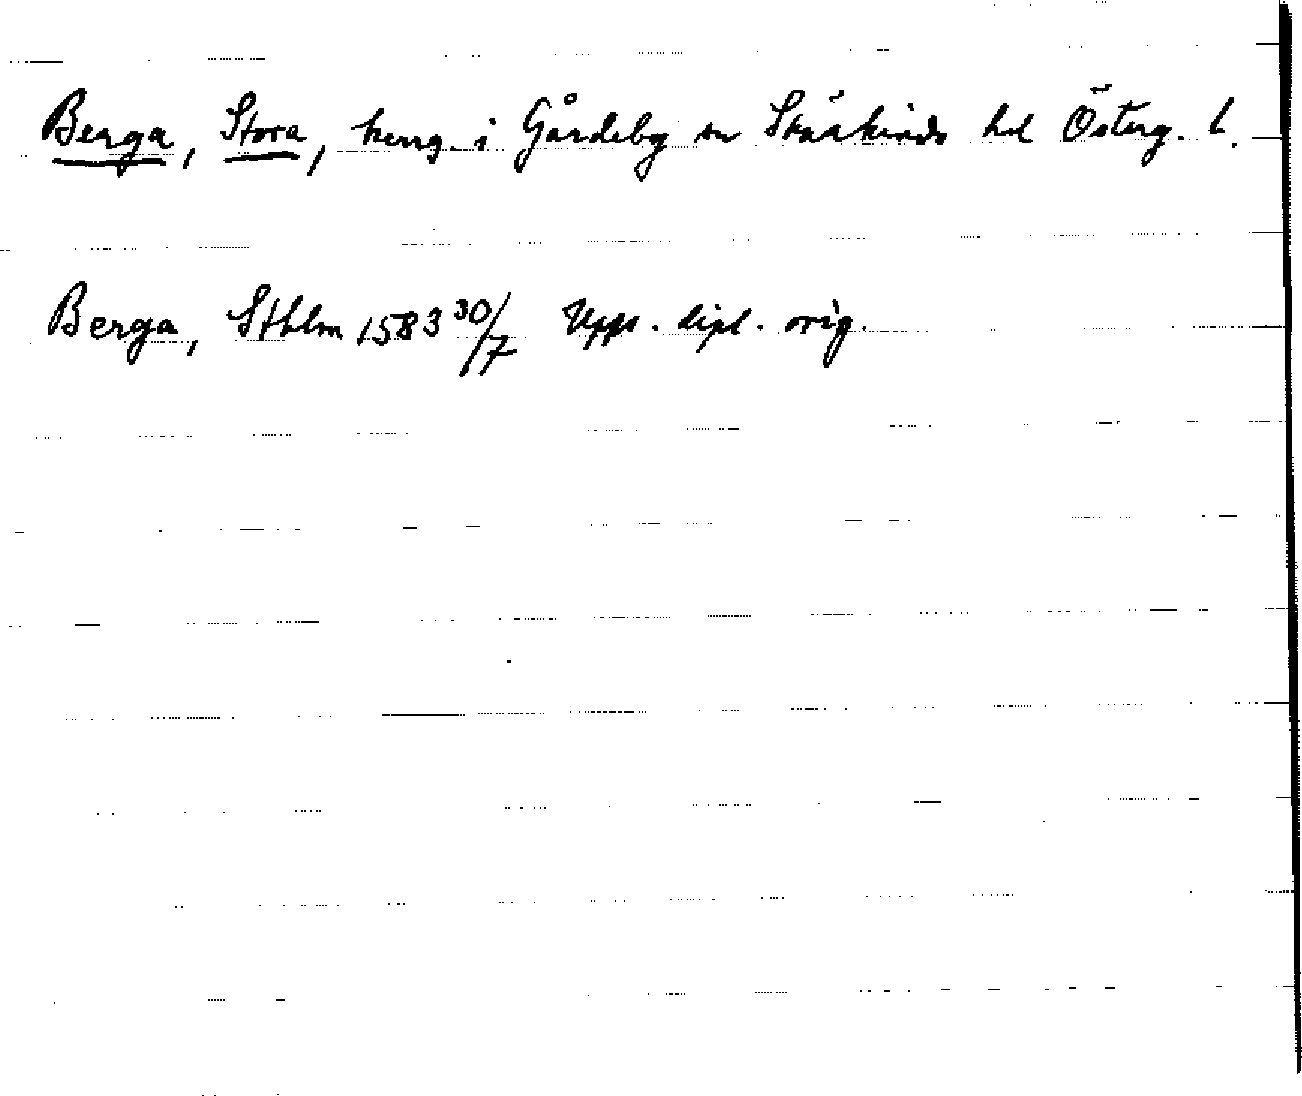 Berga, Stora, herrg. i Gårdeby sn Skärkinds hd Österg. l.
Berga, Sthlm 1583 30/7 Upps. dipl. orig.